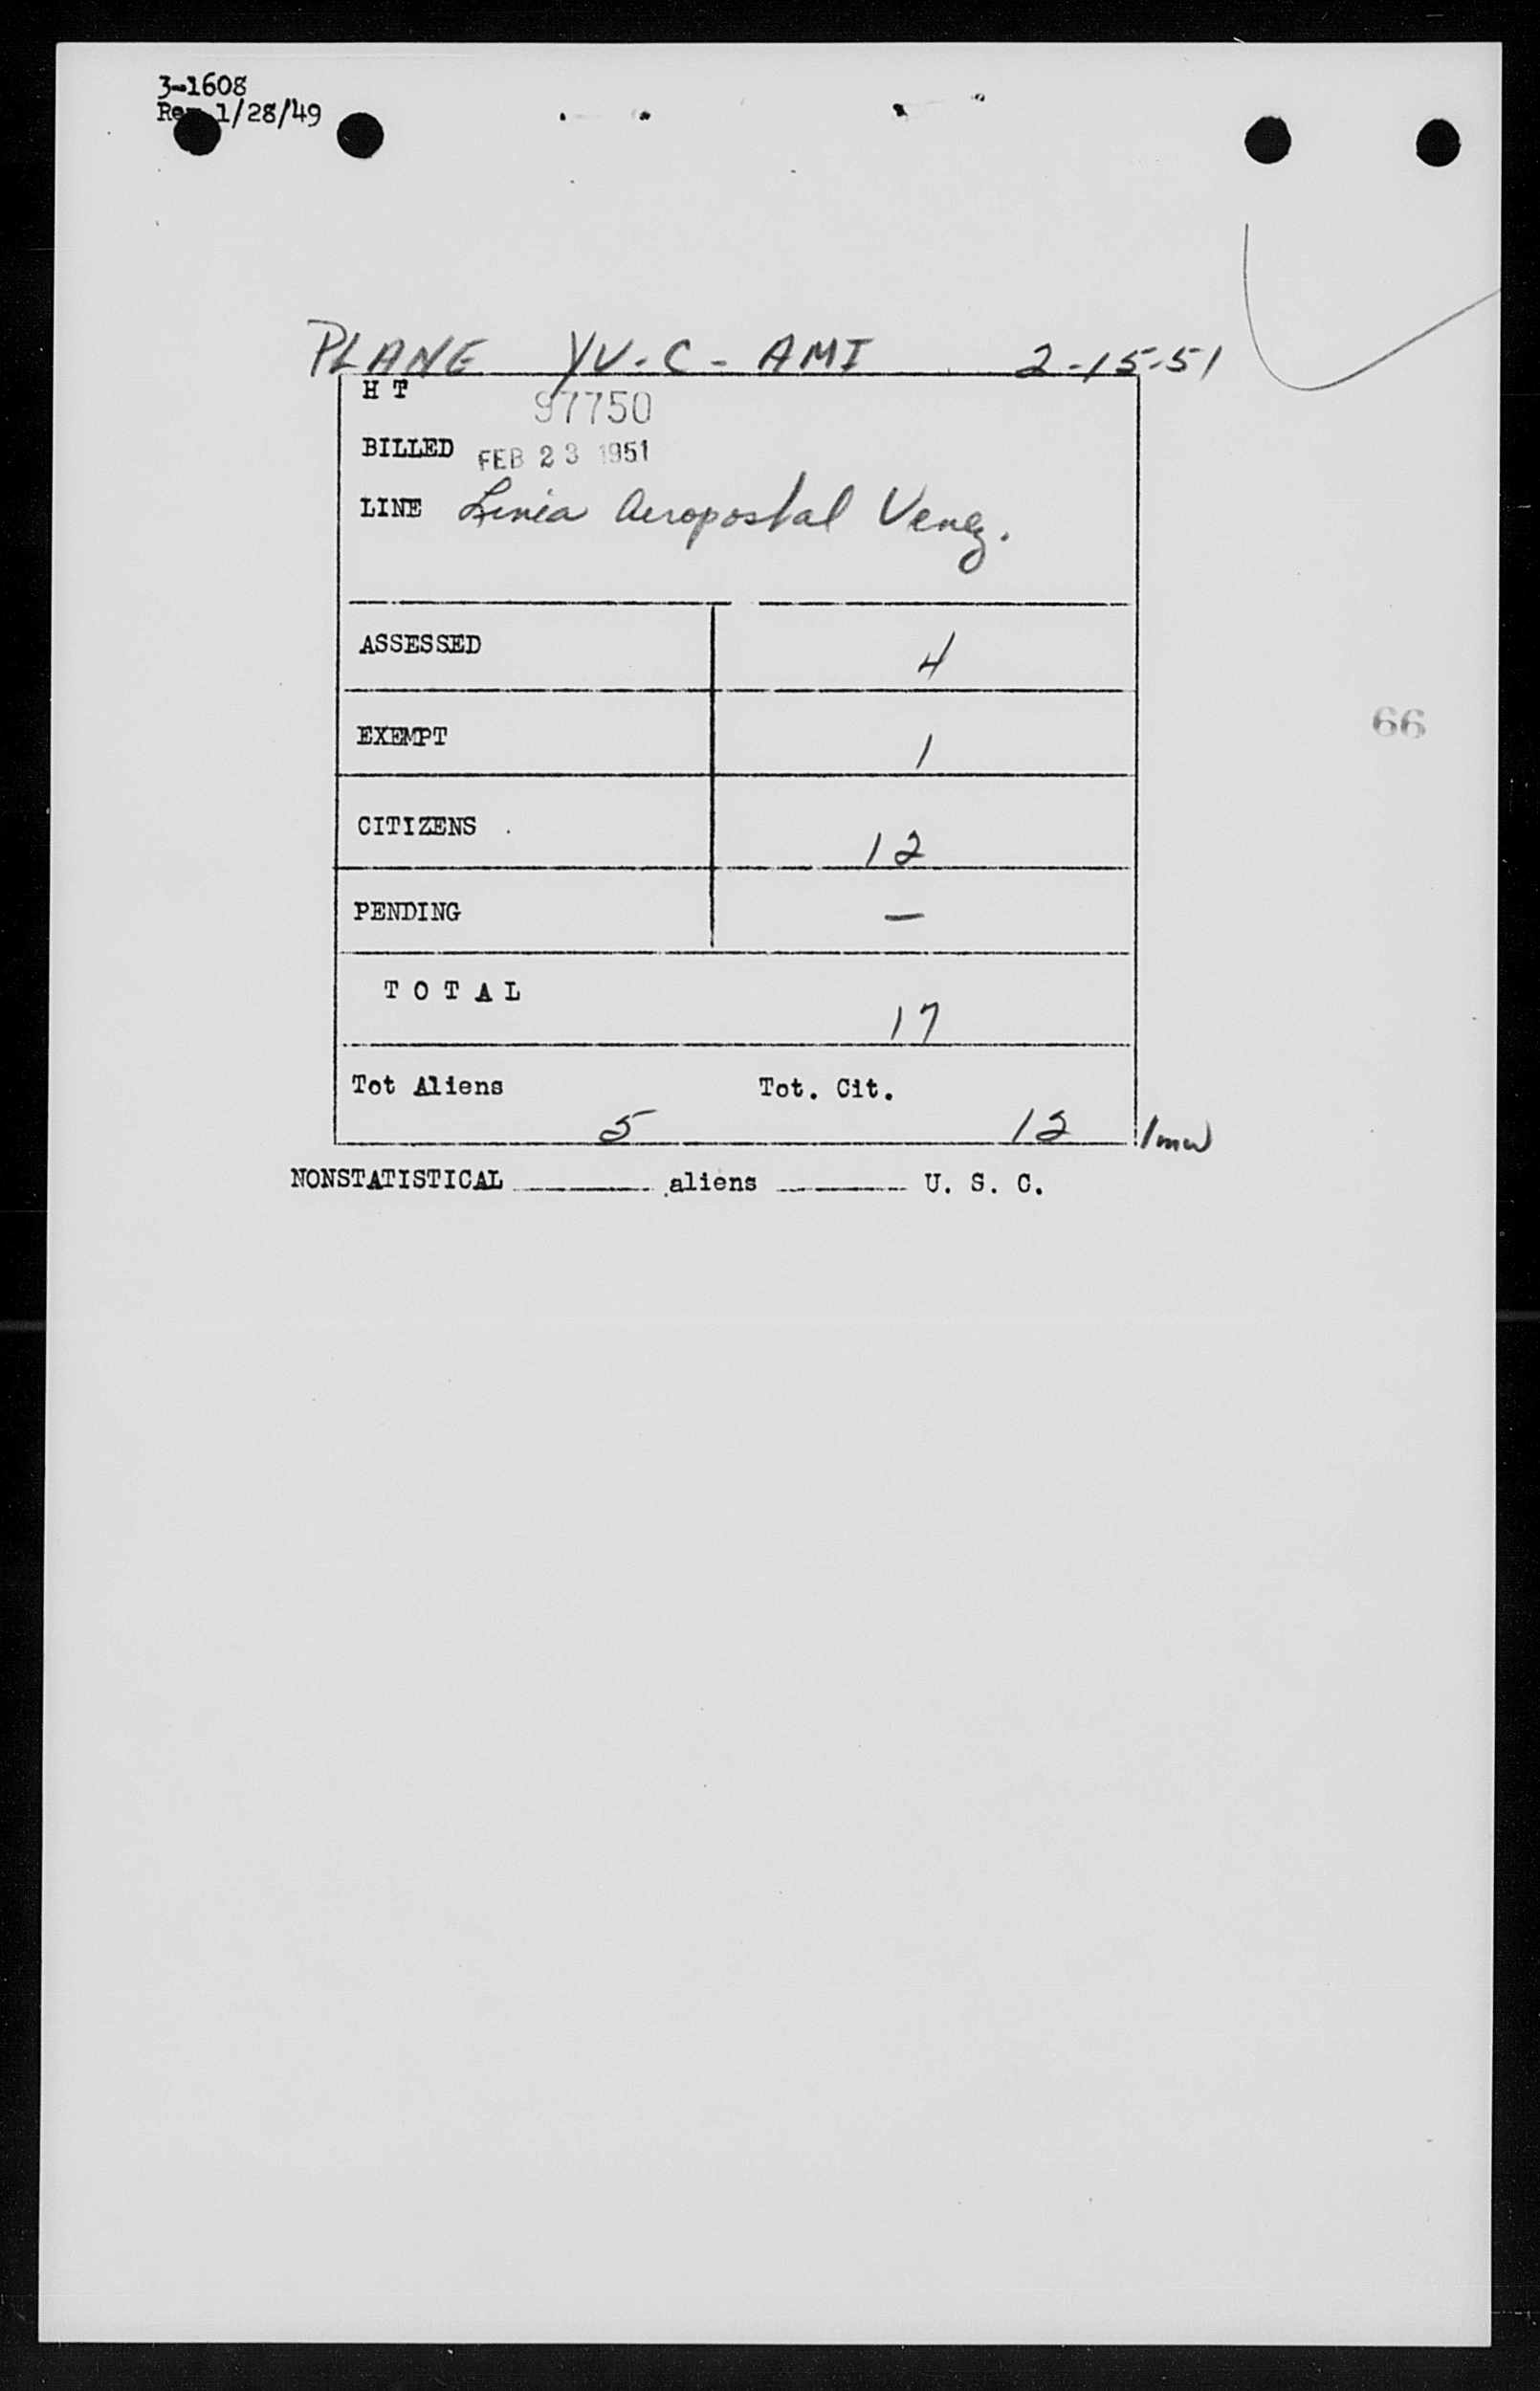 3-1608
Rev 1/28/49
PLANE YV-C-AMI 2-15-51
H T 97750
BILLED FEB 23 1951
LINE Linia Aeropostal Venez.
ASSESSED 4
EXEMPT 1
66
CITIZENS 12
PENDING —
TOTAL 17
Tot Aliens 5 Tot. Cit. 12
NONSTATISTICAL ______ aliens ______ U. S. C.